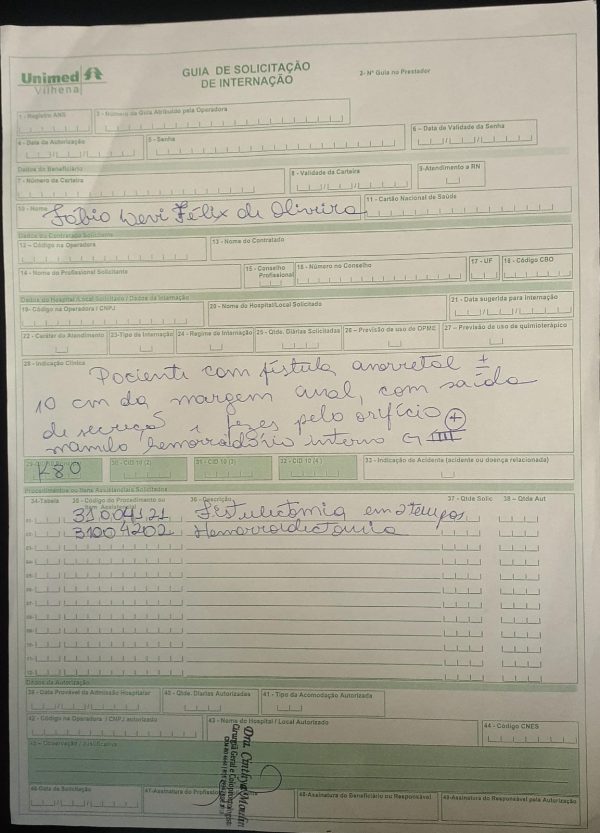 Unimed
Vilhena
GUIA DE SOLICITAÇÃO
DE INTERNAÇÃO
2- Nº Guia no Prestador
1 - Registro ANS
3 - Número da Guia Atribuído pela Operadora
4 - Data da Autorização
5 - Senha
6 – Data de Validade da Senha
Dados do Beneficiário
7 - Número da Carteira
8 - Validade da Carteira
9-Atendimento a RN
10 - Nome
Fábio Levi Félix de Oliveira
11 - Cartão Nacional de Saúde
Dados do Contratado Solicitante
12 – Código na Operadora
13 - Nome do Contratado
14 - Nome do Profissional Solicitante
15 - Conselho Profissional
16 - Número no Conselho
17 - UF
18 - Código CBO
Dados do Hospital /Local Solicitado / Dados da Internação
19- Código na Operadora / CNPJ
20 - Nome do Hospital/Local Solicitado
21 - Data sugerida para internação
22 - Caráter do Atendimento
23-Tipo de Internação
24 - Regime de Internação
25 - Qtde. Diárias Solicitadas
26 – Previsão de uso de OPME
27 – Previsão de uso de quimioterápico
28 - Indicação Clínica
Paciente com fístula anorretal ±
10 cm da margem anal, com saída
de secreção e fezes pelo orifício +
mamilo hemorroidário interno G III
K80
30 - CID 10 (2)
31 - CID 10 (3)
32 - CID 10 (4)
33 - Indicação de Acidente (acidente ou doença relacionada)
Procedimentos ou Itens Assistenciais Solicitados
34-Tabela
35 - Código do Procedimento ou Item Assistencial
36 - Descrição
37 - Qtde Solic
38 – Qtde Aut
31004121 Fistulectomia em 2 tempos
31004202 Hemorroidectomia
Dados da Autorização
39 - Data Provável da Admissão Hospitalar
40 - Qtde. Diarias Autorizadas
41 - Tipo da Acomodação Autorizada
42 - Código na Operadora / CNPJ autorizado
43 - Nome do Hospital / Local Autorizado
44 - Codigo CNES
45 – Observação / Justificativa
46-Data da Solicitação
47-Assinatura do Profissional
48-Assinatura do Beneficiário ou Responsável
49-Assinatura do Responsável pela Autorização
Cirurgia Geral e